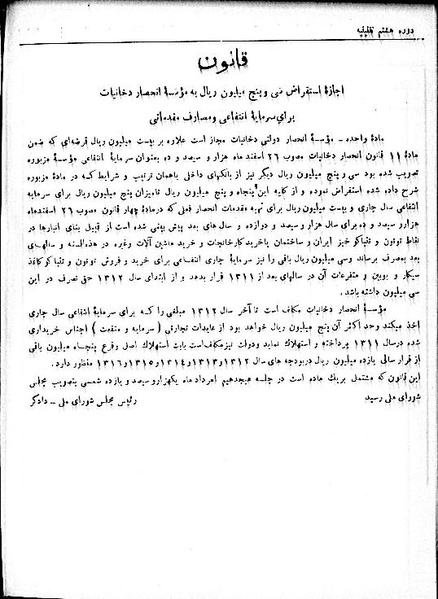 دوره هشتم تقنینیه
قانون
اجازۀ استقراض سی و پنج میلیون ریال به مؤسسۀ انحصار دخانیات
برای سرمایۀ انتفاعی ومصارف مقدماتی
مادۀ واحده - مؤسسۀ انحصار دولتی دخانیات مجاز است علاوه بر بیست میلیون ریال قرضه‌ای که ضمن
مادۀ ۱۱ قانون انحصار دخانیات مصوب ۲۶ اسفند ماه هزار و سیصد و ده بعنوان سرمایۀ انتفاعی مؤسسۀ مزبوره
تصویب شده بود سی و پنج میلیون ریال دیگر نیز از بانکهای داخلی باهمان ترتیب و شرایط که در مادۀ مزبوره
شرح داده شده استقراض نموده و از کلیه این پنجاه و پنج میلیون ریال تامیزان پنج میلیون ریال برای سرمایه
انتفاعی سال جاری و بیست میلیون ریال برای تهیه مقدمات انحصار فعلی که درمادۀ چهار قانون مصوب ۲۶ اسفندماه
هزارو سیصد و ده برای سال هزار و سیصد و دوازده و سال های بعد پیش بینی شده است از قبیل بنای انبارها در
نقاط توتون و تنباکو خیز ایران و ساختمان یاخرید کارخانجات و خرید ماشین آلات وغیره در هذه‌السنه و سالهای
بعد بمصرف برساند وسی میلیون ریال باقی را نیز سرمایۀ جاری انتفاعی برای خرید و فروش توتون و تنباکو کاغذ
سیگار و بوبین و متفرعات آن در سالهای بعد از ۱۳۱۱ قرار بدهد و از ابتدای سال ۱۳۱۲ حق تصرف در این
سی میلیون داشته باشد.
مؤسسۀ انحصار دخانیات مکلف است تا آخر سال ۱۳۱۲ مبلغی را که برای سرمایۀ انتفاعی سال جاری
اخذ میکند وحد اکثر آن پنج میلیون ریال خواهد بود از عایدات تجارتی ( سرمایه و منفعت ) اجناس خریداری
شده درسال ۱۳۱۱ پرداخته و استهلاك نماید ودولت نیز مکلف است بابت استهلاك اصل وفرع پنجاه میلیون باقی
از قرار سالی یازده میلیون ریال دربودجه های سال ۱۳۱۲و۱۳۱۳و۱۳۱۴و۱۳۱۵و۱۳۱۶ منظور دارد.
این قانون که مشتمل بر یك ماده است در جلسه هیجدهم امرداد ماه یکهزارو سیصد و یازده شمسی بتصویب مجلس
شورای ملی رسید
رئیس مجلس شورای ملی - دادگر